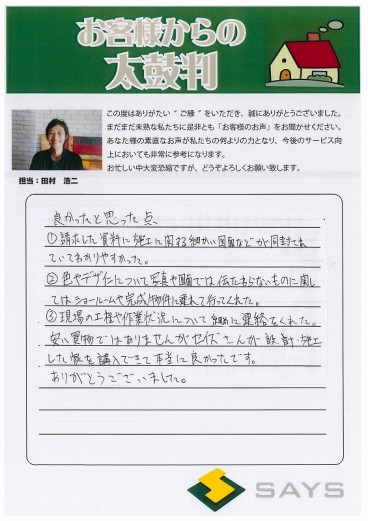 お客様からの
太鼓判
この度はありがたい“ご縁”をいただき、誠にありがとうございました。
まだまだ未熟な私たちに是非とも「お客様のお声」をお聞かせください。
あなた様の素直なお声が私たちの何よりの力となり、今後のサービス向
上においても非常に参考になります。
お忙しい中大変恐縮ですが、どうぞよろしくお願い致します。
担当：田村 浩二
良かったと思った点
①請求した資料に施工に関する細かい図面などが同封され
ていてわかりやすかった。
②色やデザインについて写真や画面では伝わらないものに関し
てはショールームや完成物件に連れて行ってくれた。
③現場の工程や作業状況について細かに連絡をくれた。
安い買物ではありませんがセイズさんが設計・施工
した家を購入できて本当に良かったです。
ありがとうございました。
SAYS